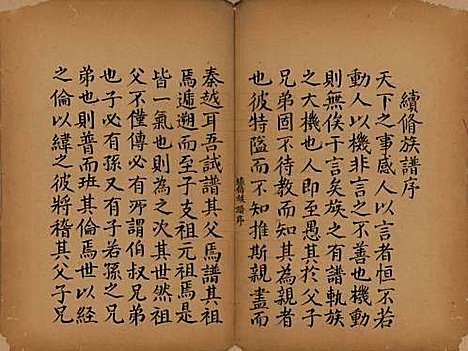 續脩族譜序
天下之事感人以言者恒不若
動人以機非言之不善也機動
則無俟于言矣族之有譜軌族
之大機也人即至愚其於父子
兄弟固不待教而知親其親而
也彼特隘而不知推斯親盡而
續脩族譜序
秦越耳吾試譜其父焉譜其祖
焉遞遡而至于支祖元祖焉是
皆一氣也則為次其世然祖
父不僅傳必有所謂伯叔兄弟
也子必有孫又有子若孫之兄
弟也則普而班其倫焉世以經
之倫以緯之彼將稽其父子兄